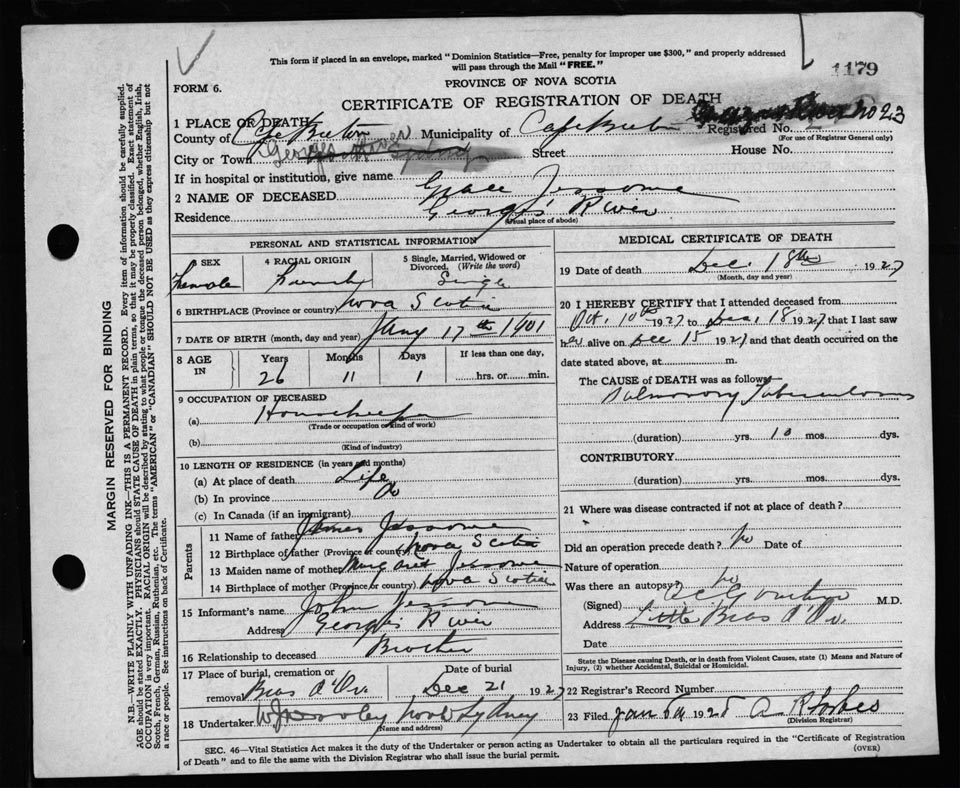 This form if placed in an envelope, marked "Dominion Statistics—Free, penalty for improper use $300," and properly addressed
will pass through the Mail "FREE."
1179
FORM 6.
PROVINCE OF NOVA SCOTIA
CERTIFICATE OF REGISTRATION OF DEATH
1 PLACE OF DEATH
County of Cape Breton Municipality of Cape Breton Registered No. 23
(For use of Registrar General only)
City or Town Georges River Street House No.
If in hospital or institution, give name
2 NAME OF DECEASED Grace Jessome
Residence Georges River
(Usual place of abode)
PERSONAL AND STATISTICAL INFORMATION
SEX 4 RACIAL ORIGIN 5 Single, Married, Widowed or Divorced. (Write the word)
Female French Single
6 BIRTHPLACE (Province or country) Nova Scotia
7 DATE OF BIRTH (month, day and year) Jany 17th 1901
8 AGE IN Years Months Days If less than one day,
26 11 1 hrs. or min.
9 OCCUPATION OF DECEASED
(a) Housekeeper
(Trade or occupation or kind of work)
(b)
(Kind of industry)
10 LENGTH OF RESIDENCE (in years and months)
(a) At place of death Life
(b) In province
(c) In Canada (if an immigrant)
Parents
11 Name of father James Jessome
12 Birthplace of father (Province or country) Nova Scotia
13 Maiden name of mother Margaret Jessome
14 Birthplace of mother (Province or country) Nova Scotia
15 Informant's name John Jessome
Address Georges River
16 Relationship to deceased Brother
17 Place of burial, cremation or removal Bras D'Or Date of burial Dec 21 1927
18 Undertaker North Sydney
(Name and address)
MEDICAL CERTIFICATE OF DEATH
19 Date of death Dec. 18th 1927
(Month, day and year)
20 I HEREBY CERTIFY that I attended deceased from
Oct. 10th 1927 to Dec. 18 1927 that I last saw
her alive on Dec 15 1927 and that death occurred on the
date stated above, at m.
The CAUSE of DEATH was as follows—
Pulmonary Tuberculosis
(duration) yrs. 10 mos. dys.
CONTRIBUTORY
(duration) yrs. mos. dys.
21 Where was disease contracted if not at place of death?
Did an operation precede death? No Date of
Nature of operation
Was there an autopsy? No
(Signed) M.D.
Address Little Bras D'Or
Date
State the Disease causing Death, or in death from Violent Causes, state (1) Means and Nature of
Injury, (2) whether Accidental, Suicidal or Homicidal.
22 Registrar's Record Number
23 Filed Jan 1928 A R Forbes
(Division Registrar)
SEC. 46—Vital Statistics Act makes it the duty of the Undertaker or person acting as Undertaker to obtain all the particulars required in the "Certificate of Registration
of Death" and to file the same with the Division Registrar who shall issue the burial permit.
(OVER)
MARGIN RESERVED FOR BINDING
N.B.—WRITE PLAINLY WITH UNFADING INK—THIS IS A PERMANENT RECORD. Every item of information should be carefully supplied.
AGE should be stated EXACTLY. PHYSICIANS should STATE CAUSE OF DEATH in plain terms, so that it may be properly classified. Exact statement of
OCCUPATION is very important. RACIAL ORIGIN will be described by stating to what people or tongue the deceased person belonged, whether English, Irish,
Scotch, French, German, Russian, Ruthenian, etc. The terms "AMERICAN" or "CANADIAN" SHOULD NOT BE USED as they express citizenship but not
a race or people. See instructions on back of Certificate.